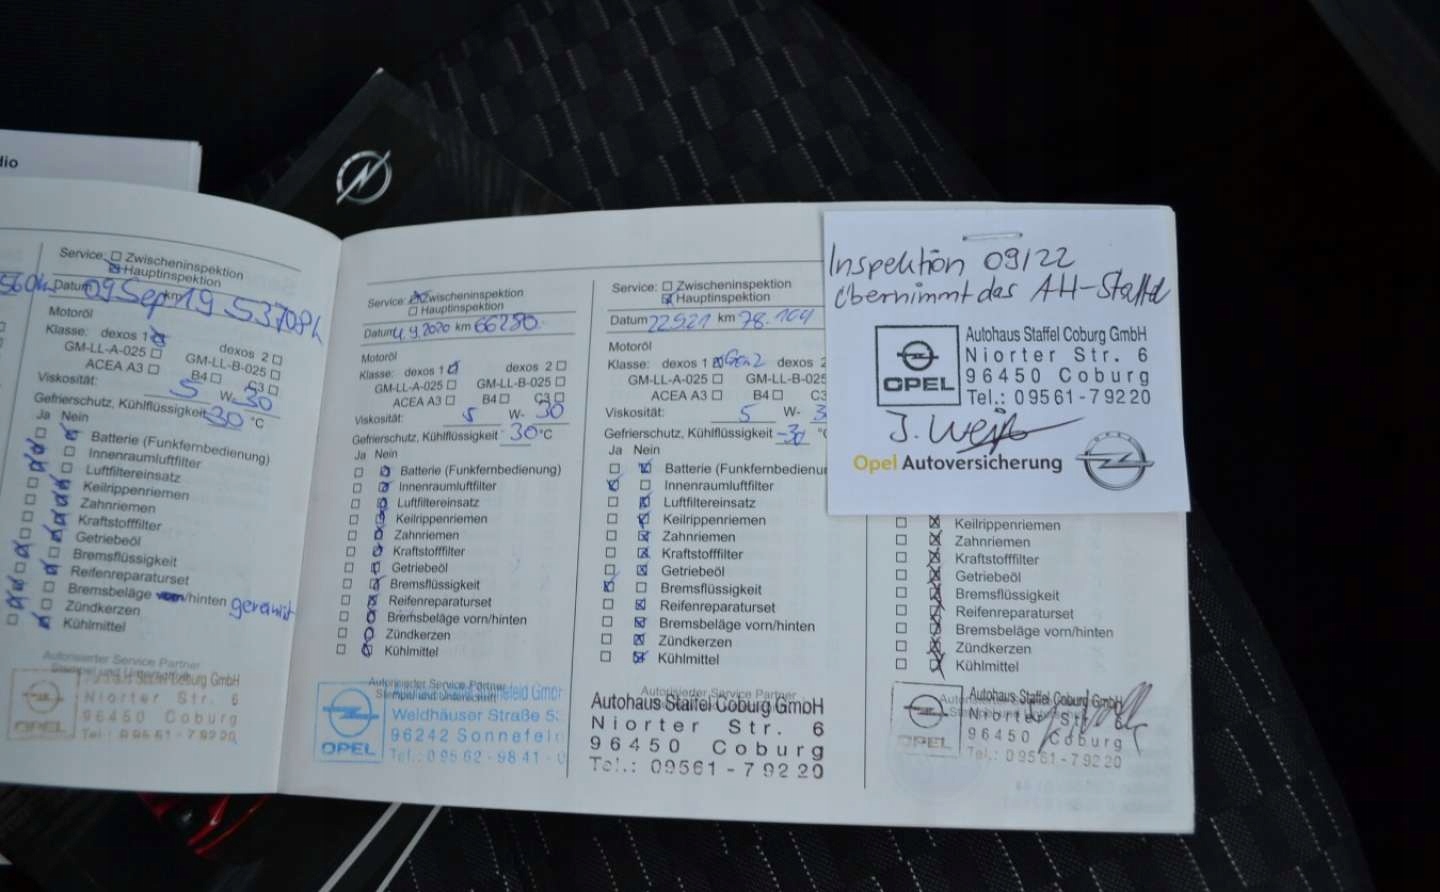 dio
Service: Zwischeninspektion
Hauptinspektion
Datum 09 Sep 19 km 53708k
Motoröl
Klasse: dexos 1 dexos 2
GM-LL-A-025 GM-LL-B-025
ACEA A3 B4 C3
Viskosität: 5 W- 30
Gefrierschutz, Kühlflüssigkeit -30 °C
Ja Nein
Batterie (Funkfernbedienung)
Innenraumluftfilter
Luftfiltereinsatz
Keilrippenriemen
Zahnriemen
Kraftstofffilter
Getriebeöl
Bremsflüssigkeit
Reifenreparaturset
Bremsbeläge vorn/hinten gereinigt
Zündkerzen
Kühlmittel
Autorisierter Service Partner
Stempel und Unterschrift
Autohaus Staffel Coburg GmbH
Niorter Str. 6
96450 Coburg
Tel.: 09561-79220
OPEL
Service: Zwischeninspektion
Hauptinspektion
Datum 4.9.2020 km 66280
Motoröl
Klasse: dexos 1 dexos 2
GM-LL-A-025 GM-LL-B-025
ACEA A3 B4 C3
Viskosität: 5 W- 30
Gefrierschutz, Kühlflüssigkeit -30 °C
Ja Nein
Batterie (Funkfernbedienung)
Innenraumluftfilter
Luftfiltereinsatz
Keilrippenriemen
Zahnriemen
Kraftstofffilter
Getriebeöl
Bremsflüssigkeit
Reifenreparaturset
Bremsbeläge vorn/hinten
Zündkerzen
Kühlmittel
Autorisierter Service Partner
Stempel und Unterschrift
Weidhäuser Straße 5
96242 Sonnefeld
Tel.: 09562-9841-0
OPEL
Service: Zwischeninspektion
Hauptinspektion
Datum 22.9.21 km 78.104
Motoröl
Klasse: dexos 1 Gen2 dexos 2
GM-LL-A-025 GM-LL-B-025
ACEA A3 B4 C3
Viskosität: 5 W- 3
Gefrierschutz, Kühlflüssigkeit -30 °C
Ja Nein
Batterie (Funkfernbedienu
Innenraumluftfilter
Luftfiltereinsatz
Keilrippenriemen
Zahnriemen
Kraftstofffilter
Getriebeöl
Bremsflüssigkeit
Reifenreparaturset
Bremsbeläge vorn/hinten
Zündkerzen
Kühlmittel
Autorisierter Service Partner
Autohaus Staffel Coburg GmbH
Niorter Str. 6
96450 Coburg
Tel.: 09561-79220
Inspektion 09/22
übernimmt das AH-Staffel
OPEL
Autohaus Staffel Coburg GmbH
Niorter Str. 6
96450 Coburg
Tel.: 09561-79220
J. Weiß
Opel Autoversicherung
Keilrippenriemen
Zahnriemen
Kraftstofffilter
Getriebeöl
Bremsflüssigkeit
Reifenreparaturset
Bremsbeläge vorn/hinten
Zündkerzen
Kühlmittel
OPEL
Autohaus Staffel Coburg GmbH
Niorter Str. 6
96450 Coburg
Tel.: 09561-79220